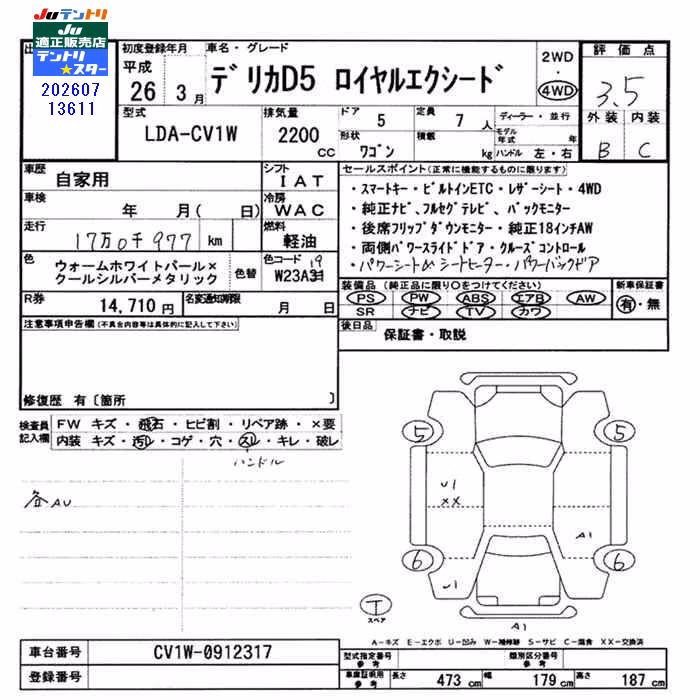 JUテントリ
JU
適正販売店
テントリ
★スター
202607
13611
初度登録年月
平成
26 3月
車名・グレード
デリカD5 ロイヤルエクシード
2WD
・
4WD
評価点
3.5
外装 内装
B C
型式
LDA-CV1W
排気量
2200 CC
ドア 5
定員 7 人
形状 ワゴン
積載 kg
ディーラー・並行
モデル年式 年
ハンドル 左・右
車歴
自家用
シフト
IAT
車検
年 月( 日)
冷房
WAC
走行
17万0千977 km
燃料
軽油
色
ウォームホワイトパール×
クールシルバーメタリック
色替
色コードNo
W23A31 19
R券
14,710円
名変通知期限
月 日
セールスポイント(正常に機能するものに限ります)
・スマートキー・ビルトインETC・レザーシート・4WD
・純正ナビ、フルセグテレビ、バックモニター
・後席フリップダウンモニター・純正18インチAW
・両側パワースライドドア・クルーズコントロール
・パワーシート シートヒーター・パワーバックドア
装備品(純正品に限り○をつけてください)
PS PW ABS エアB AW
SR ナビ TV カワ
新車保証書
有・無
後日品
保証書・取説
注意事項申告欄(不具合内容等は具体的に記入して下さい)
修復歴 有〔箇所 〕
検査員記入欄
FW キズ・飛石・ヒビ割・リペア跡・×要
内装 キズ・汚レ・コゲ・穴・スレ・キレ・破レ
ハンドル
各AU
5
5
U1
XX
A1
6
6
U1
T
スペア
A1
A-キズ E-エクボ U-凹み W-補修跡 S-サビ C-腐食 XX-交換済
車台番号
CV1W-0912317
登録番号
型式指定番号
参考
類別区分番号
参考
車庫証明用
参考
長さ 473 cm
幅 179 cm
高さ 187 cm